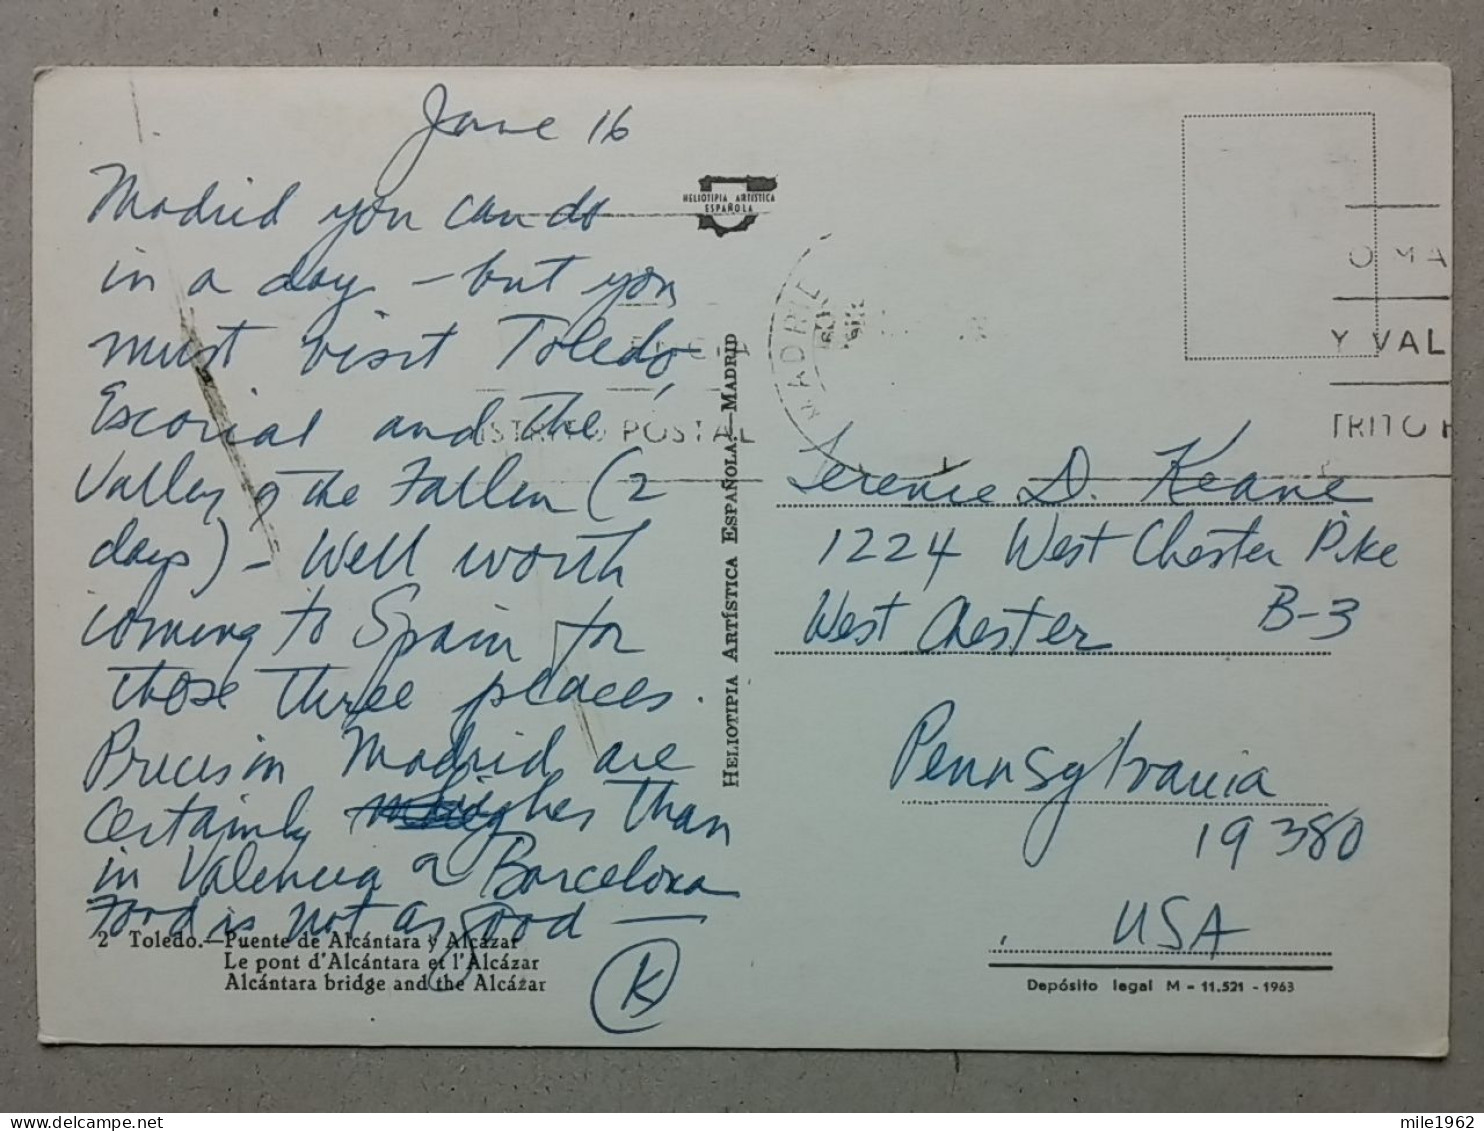 June 16
Madrid you can do
in a day – but you
must visit Toledo,
Escorial and the
Valley of the Fallen (2
days) – Well worth
coming to Spain for
those three places.
Prices in Madrid are
certainly higher than
in Valencia or Barcelona
Food is not as good —
K
2 Toledo.—Puente de Alcántara y Alcázar
Le pont d'Alcántara et l'Alcázar
Alcántara bridge and the Alcázar
HELIOTIPIA ARTISTICA
ESPAÑOLA
HELIOTIPIA ARTÍSTICA ESPAÑOLA.—MADRID
NCIA
ISTRITO POSTAL
MADRID
O MA
Y VAL
TRITO P
Terence D. Keane
1224 West Chester Pike
West Chester B-3
Pennsylvania
19380
USA
Depósito legal M - 11.521 - 1963
mile1962